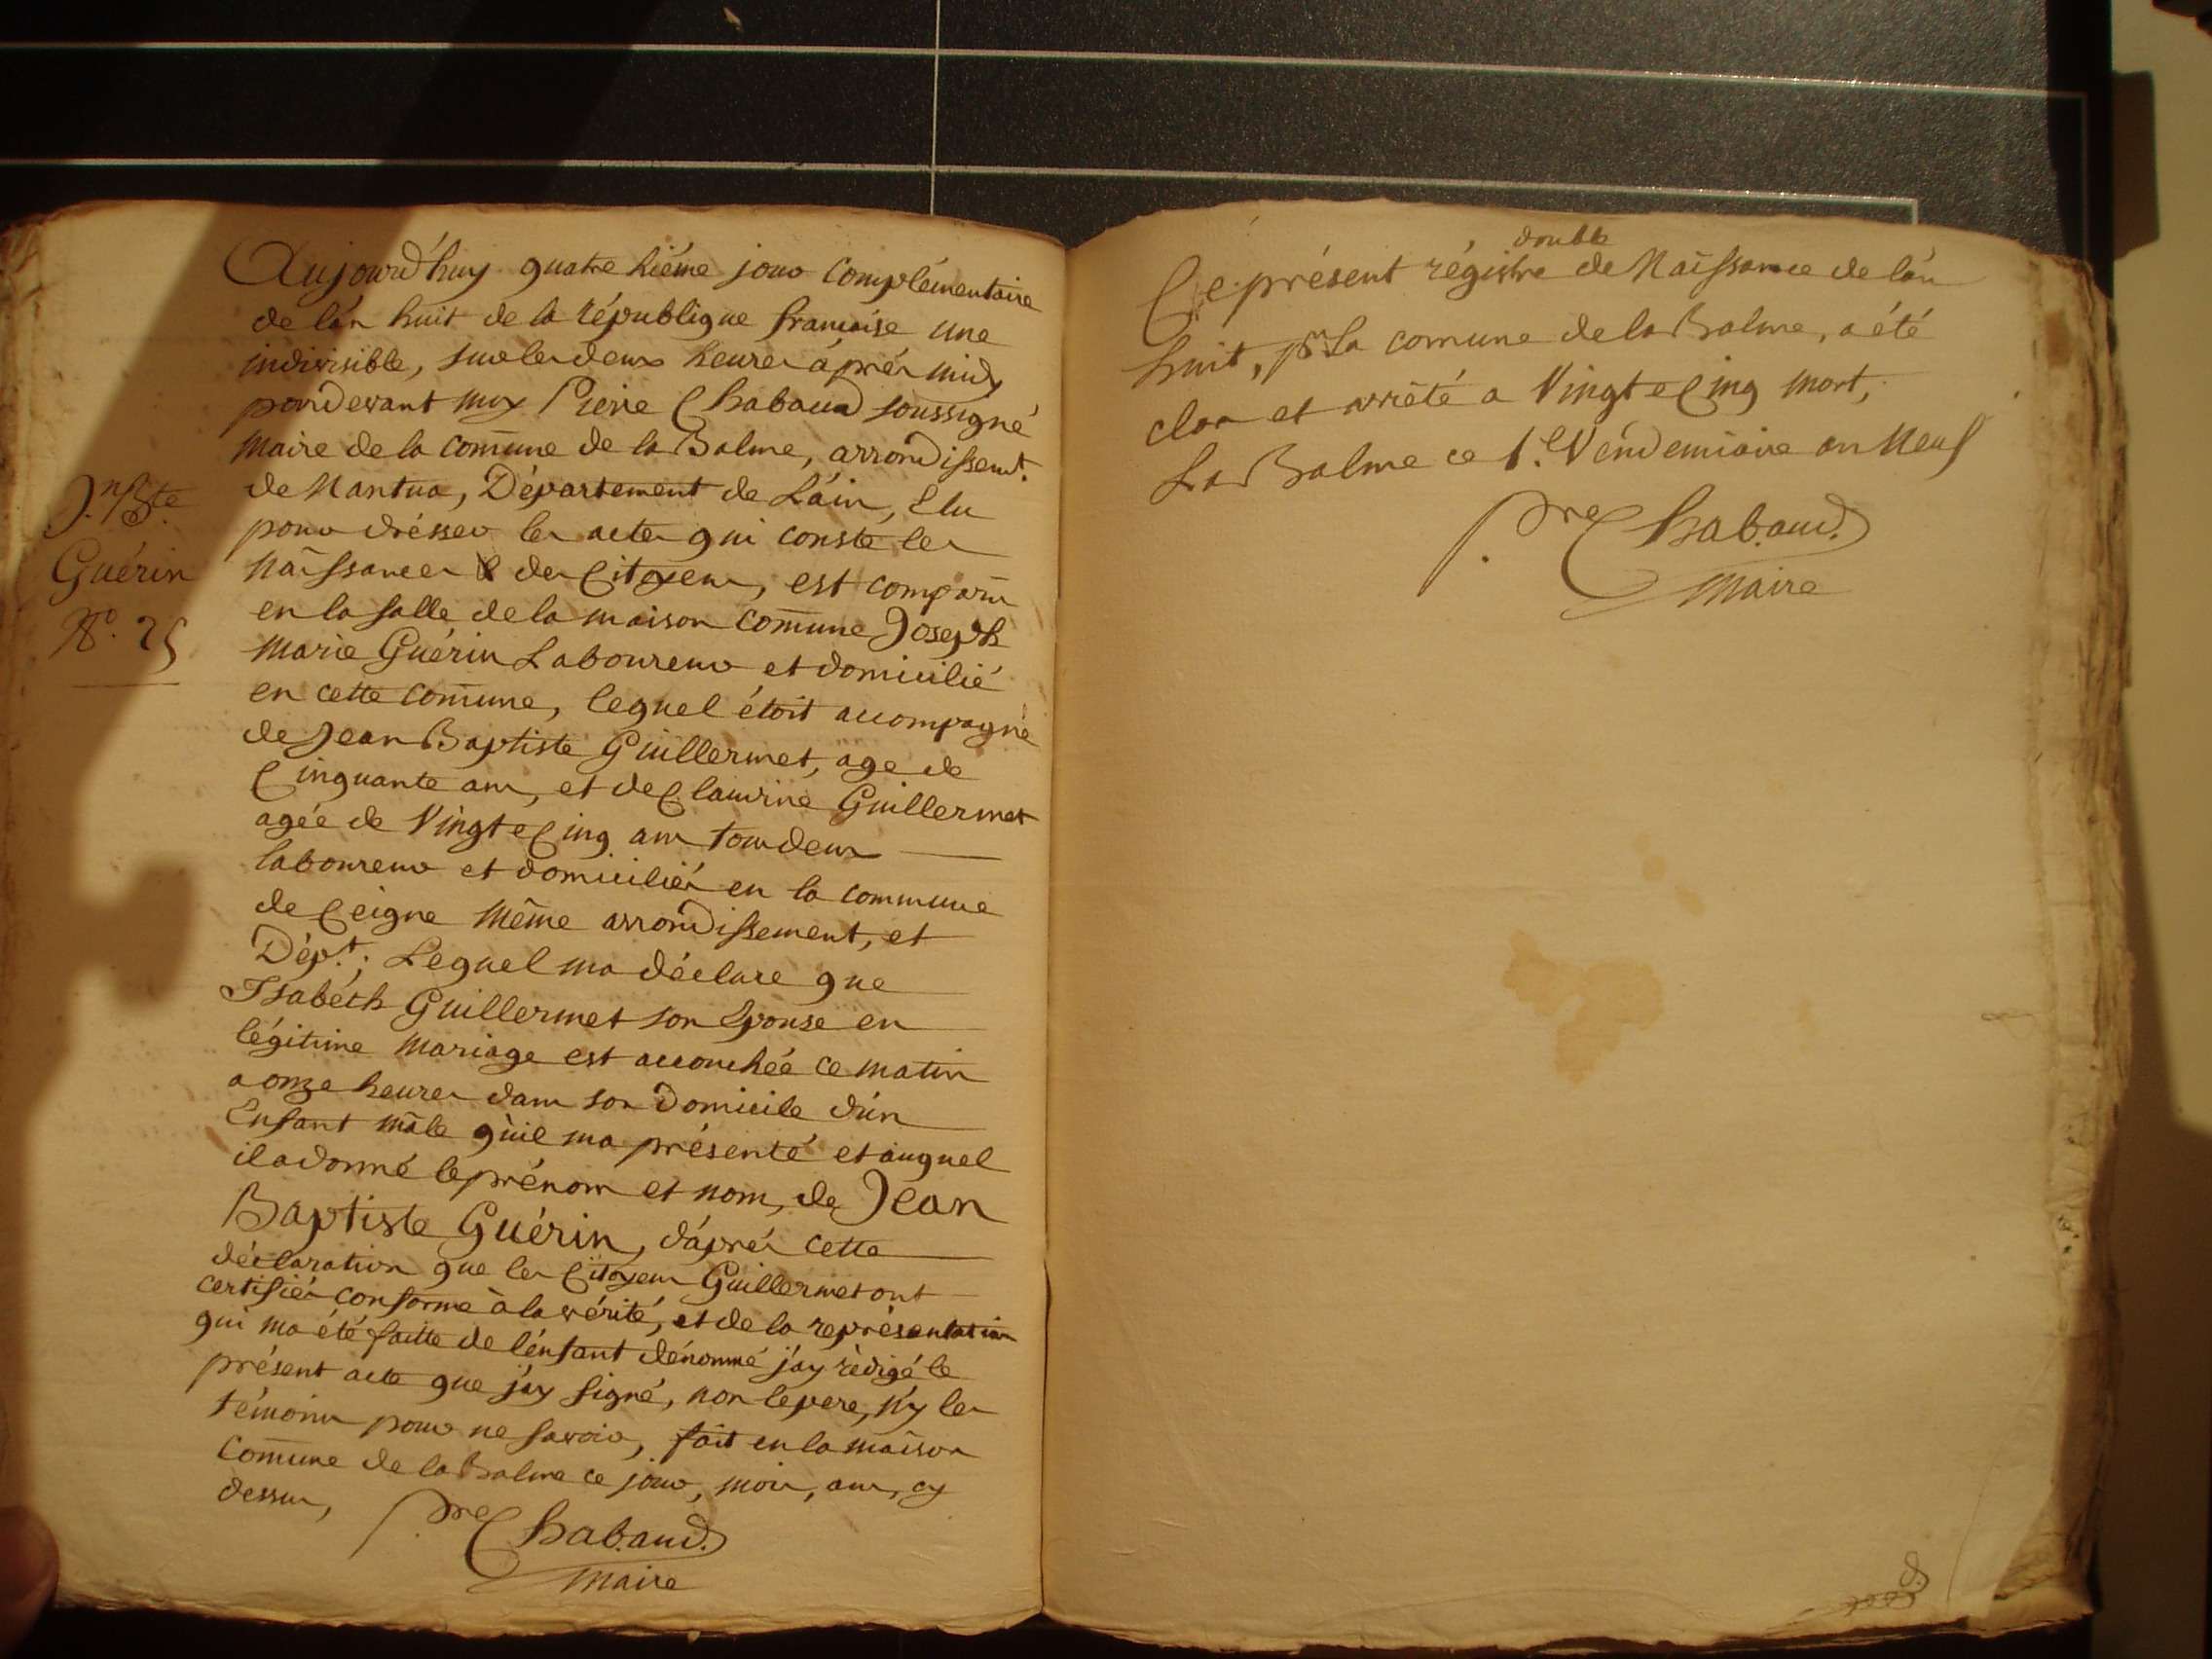 Aujourd'huy quatrehiéme jour complémentaire
de l'án huit de la république francaise une
indivisible, sur les deux heures áprés midy
pardevant moy Pierre Chabaud soussigné
maire de la com̄une de la Balme, arrondissemt.
de Nantua, Département de L'áin, Elu
pour drésser les actes qui conste les
Naissances des Citoyens, est comparu
en la salle de la maison com̄une Joseph
Marie Guérin Laboureur et domicilié
en cette com̄une, lequel étoit accompagné
de Jean Baptiste Guillermet, age de
Cinquante ans, et de Claudine Guillermet
agée de Vingt e Cinq ans tous deux
laboureur et domiciliés en la commune
de Ceigne même arrondissement, et
Dépt.; Lequel ma déclare que
Isabéth Guillermet son Epouse en
légitime mariage est accouchée ce matin
a onze heures dans son domicile d'ún
Enfant mâle qu'il ma présenté et auquel
il a donné le prénom et nom, de Jean
Baptiste Guérin, d'áprés cette
déclaration que les Citoyens Guillermet ont
certifiés conforme à la vérité, et de la représentation
qui ma été faitte de l'énfant dénommé j'ay rédigé le
présent acte que j'ay signé, non le pere, n'y les
témoins pour ne savoir, fait en la maison
Com̄une de la Balme ce jour, mois, ans, cy
dessus,
Pre Chabaud.
Maire
Jn. Bte.
Guérin
No. 25
double
Ce présent régistre de Naissance de l'án
huit, pr. la comune de la Balme, a été
clos et arrêté a Vingt e Cinq mort,
La Balme ce 1.er Vendemiaire an Neuf
Pre Chabaud.
Maire